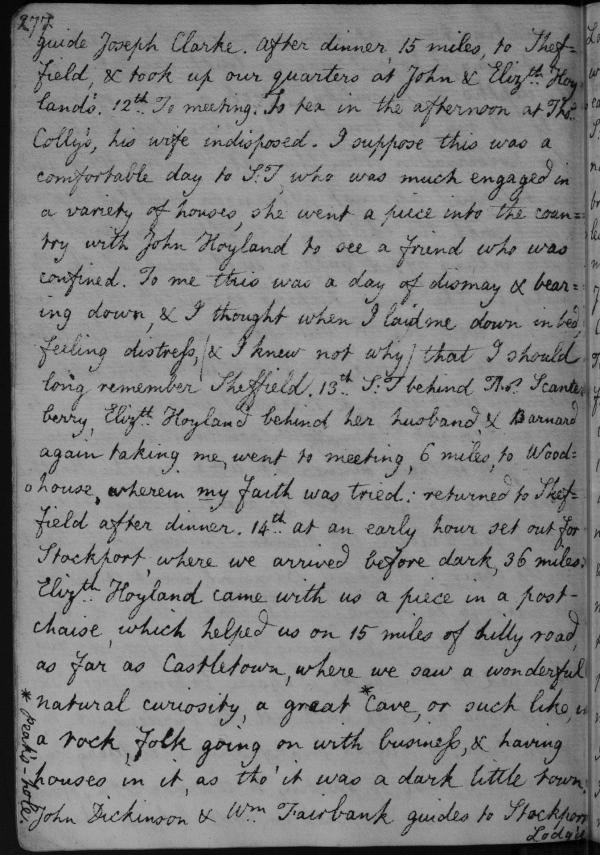 277.
guide Joseph Clarke. After dinner, 15 miles, to Shef=
field, & took up our quarters at John & Elizth. Hoy=
land's. 12th. To meeting. To tea in the afternoon at Thos.
Colly's, his wife indisposed. I suppose this was a
comfortable day to S:T, who was much engaged in
a variety of houses, she went a piece into the coun=
try with John Hoyland to see a friend who was
confined. To me this was a day of dismay & bear=
ing down, & I thought when I laid me down in bed,
feeling distress, (& I knew not why) that I should
long remember Sheffield. 13th. S:T behind Thos. Scanle=
berry, Elizth. Hoyland behind her husband, & Barnard
again taking me, went to meeting, 6 miles, to Wood=
house, wherein my faith was tried: returned to Shef=
field after dinner. 14th. at an early hour set out for
Stockport, where we arrived before dark, 36 miles:
Elizth. Hoyland came with us a piece in a post-
chaise, which helped us on 15 miles of hilly road,
as far as Castletown, where we saw a wonderful
natural curiosity, a great *Cave, or such like, in
a rock, folk going on with business, & having
houses in it, as tho' it was a dark little town.
John Dickinson & Wm. Fairbank guides to Stockport
Lodg'd
* peak's-hole.